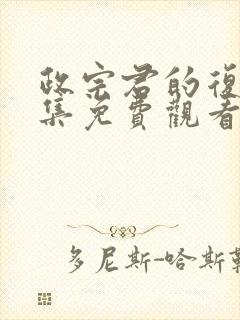 政宗君的復
集免費觀看
多尼斯-哈斯勒